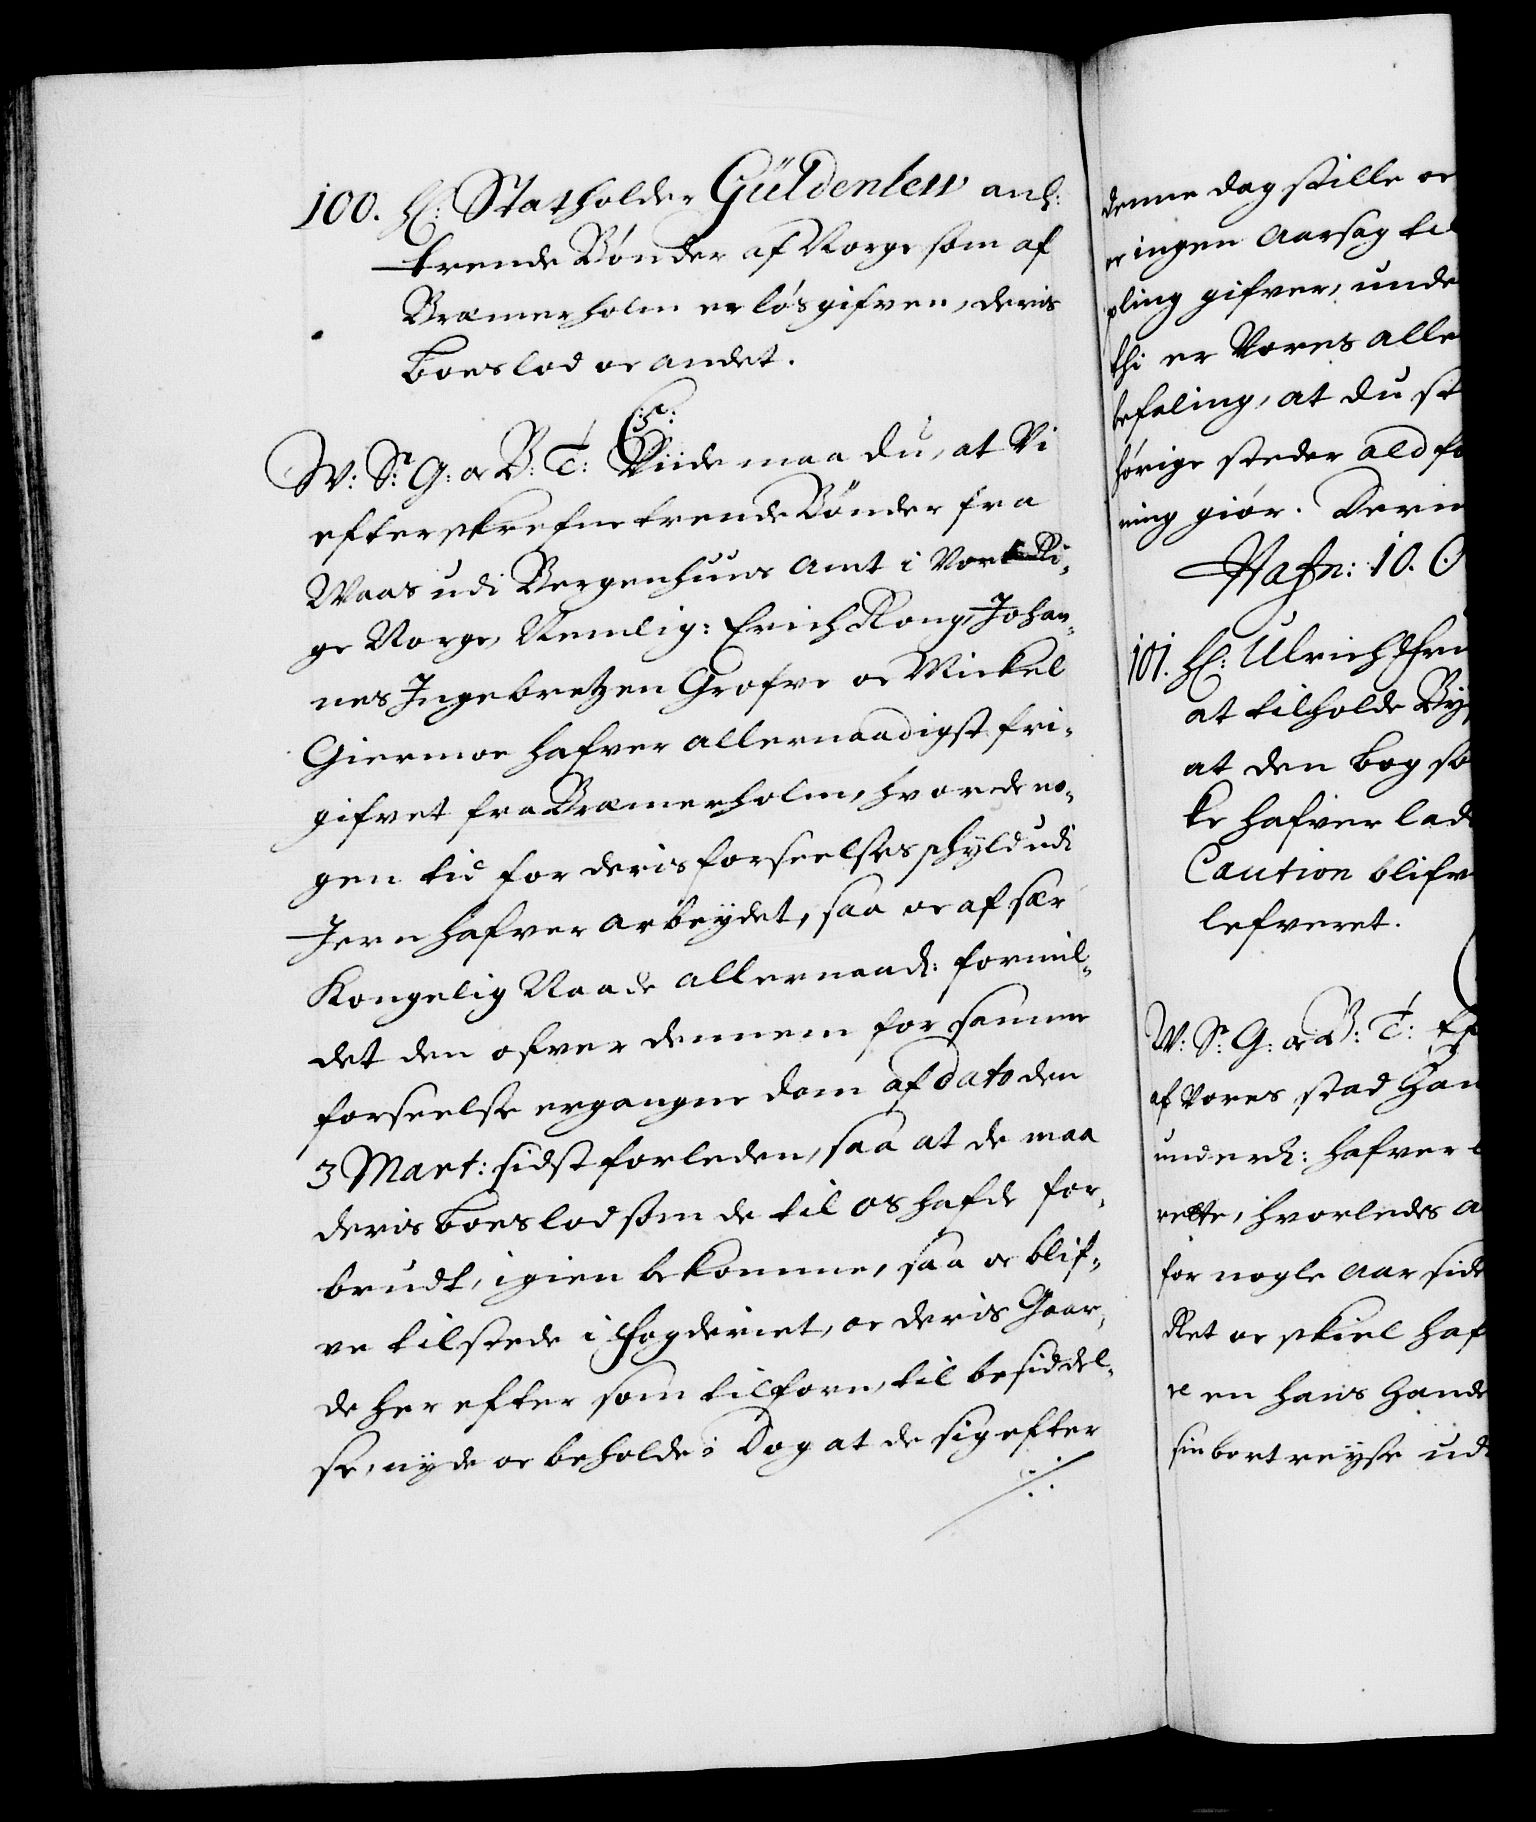 100. H: Statholder Güldenlew anl:
trende Bønder af Norge som af
Bremerholm er løsgifven, deris
boeslod oc andet.
C5.
W: S: G: oc B: T: Viide maa du, at Vi
efterskrefne trende Bønder fra
Waas udi Bergenhuus Amt i Vort Ri-
ge Norge, Nemlig: Erich Rong, Johan-
nes Ingebretzen Grofve oc Mickel
Giermoe hafver allernaadigst fri-
gifvet fra Bremerholm, hvor de no-
gen tid for deris forseelses schyld udi
Jern hafver arbeydet, saa oc af sær
Kongelig Naade allernaad: formil-
det den ofver dennem for samme
forseelse ergangne dom af dato den
3 Mart: sidst forleden, saa at de maa
deris boeslod som de til os hafde for-
brudt, igien bekomme, saa oc blif-
ve tilstede i Fogderiet, oc deris Gaar-
de her efter som tilforn, til besiddel-
se, nyde oc beholde: Dog at de sig efter
denne dag stille oc
ingen Aarsag til
pling gifver, unde
thi er Vores alle
befaling, at du st
hørige steder ald fo
ning giør. Derm
Hafn: 10. O
101. H: Ulrich Fri
at tilholde By
at den bog so
ke hafver lad
Caution blifv
lefveret.
W: S: G: oc B: T: Ef
af Vores stad Han
underd: hafver
rette, hvorledes a
for nogle Aar side
Ret oc skiel haf
en hans Hande
sin bortreyse ud